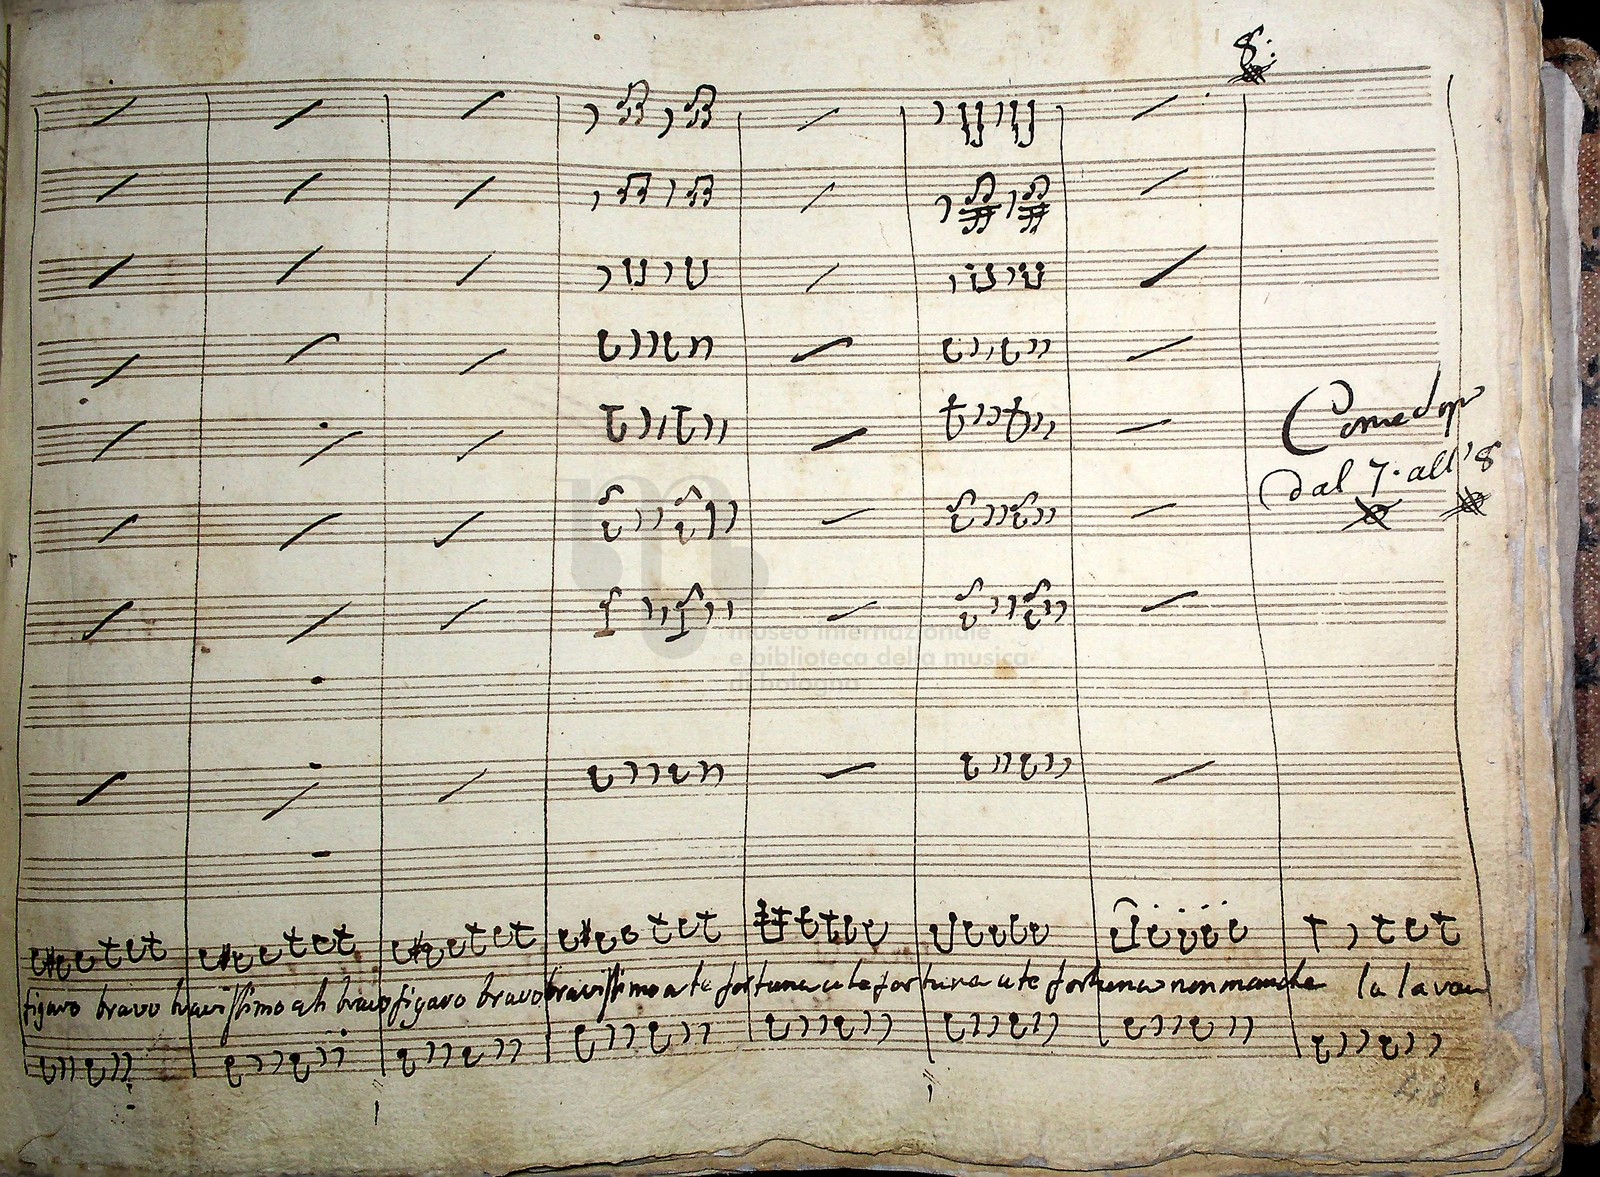 8:
Come dop
dal 7. all' 8
museo internazionale
e biblioteca della musica
di bologna
figaro bravo bravissimo ah bravo figaro bravo bravissimo a te fortuna a te fortuna a te fortuna non manche la la vau
48